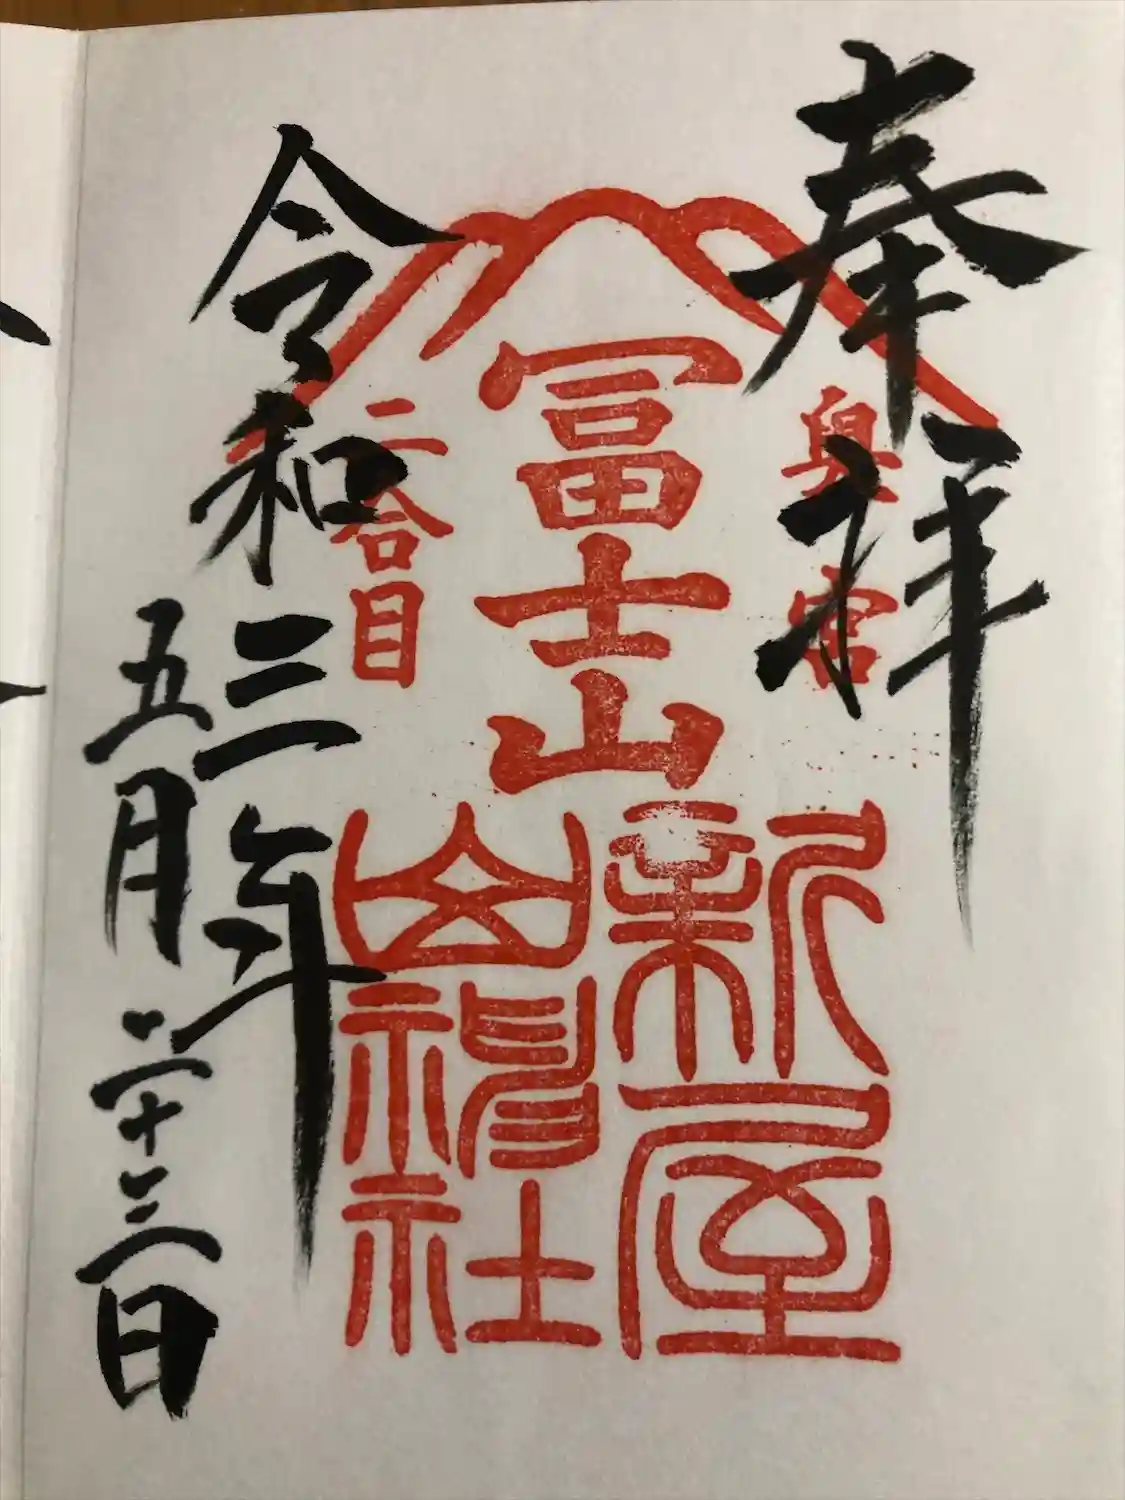 奉拝
奥宮
冨士山
新屋
山神社
二合目
令和三年
五月二十三日